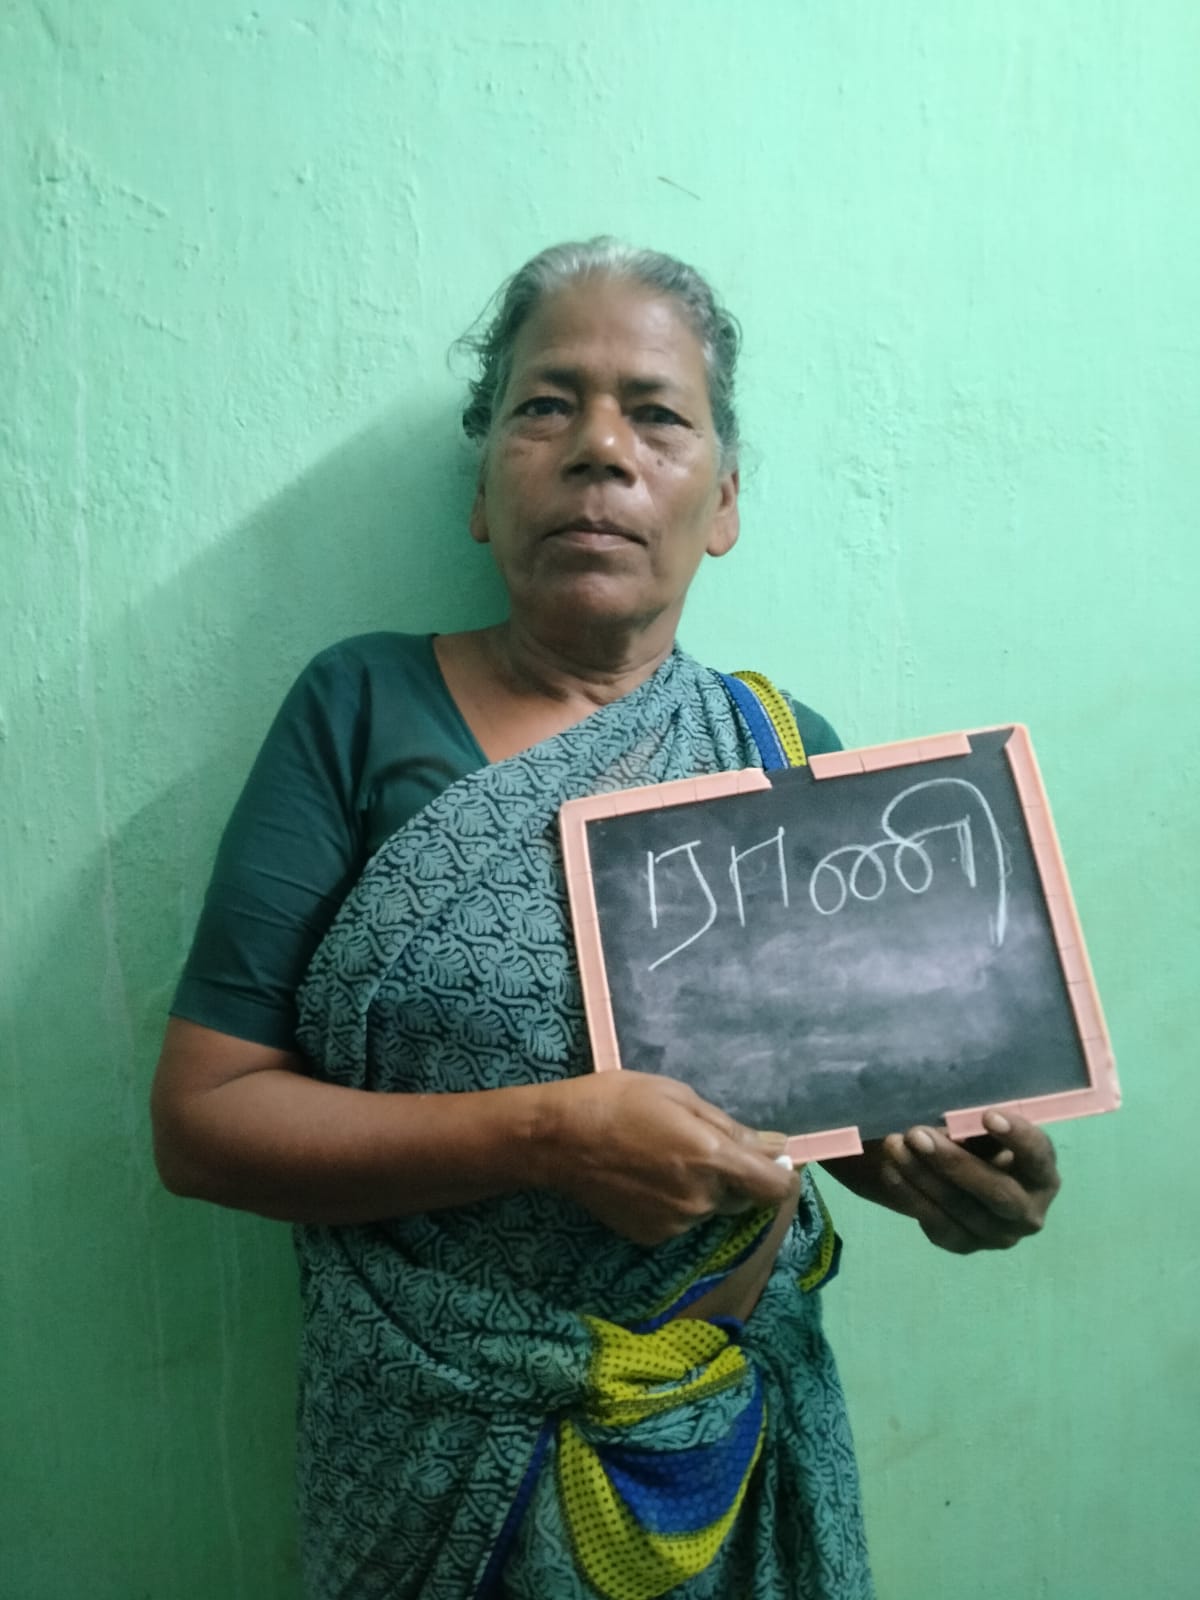 ராணி